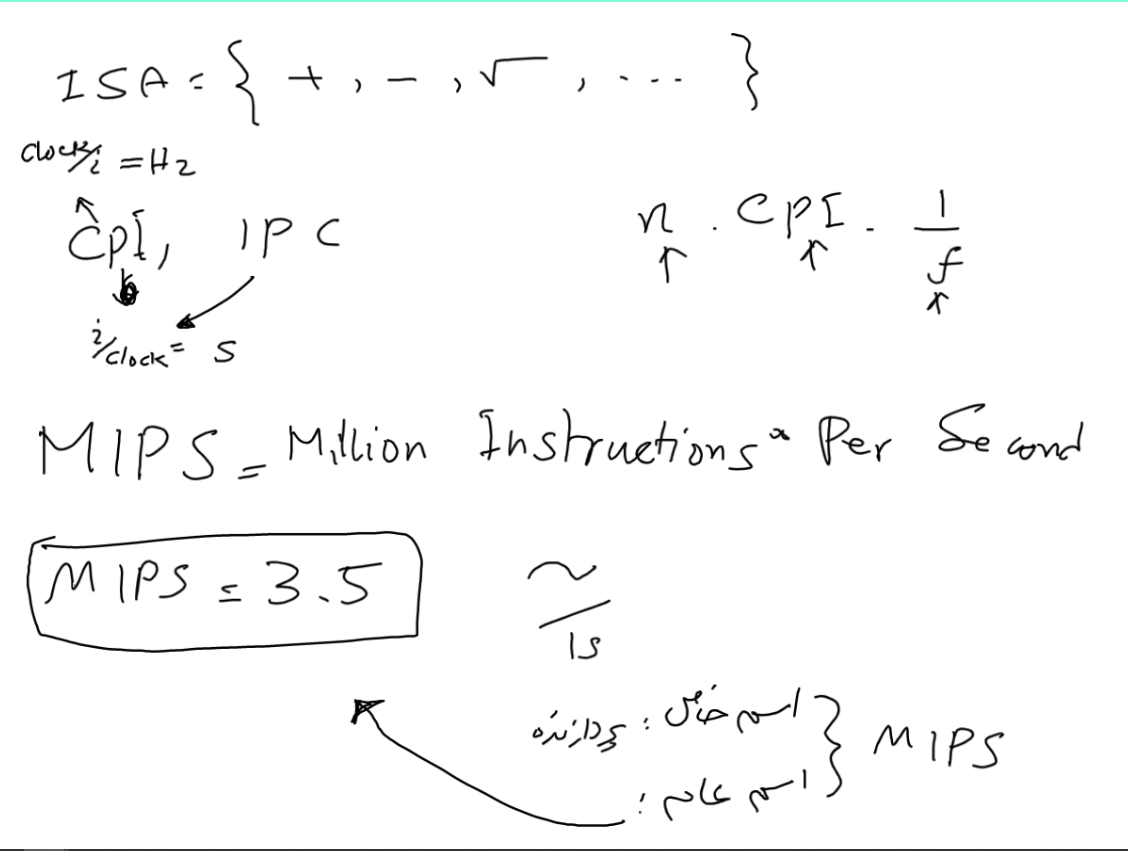 ISA = { + , - , √ , ... }
clock/i = Hz
CPI, IPC
n . CPI . 1/f
i/clock = s
MIPS = Million Instructions Per Second
MIPS = 3.5
~/1s
اسم خاص : پردازنده
اسم عام :
} MIPS